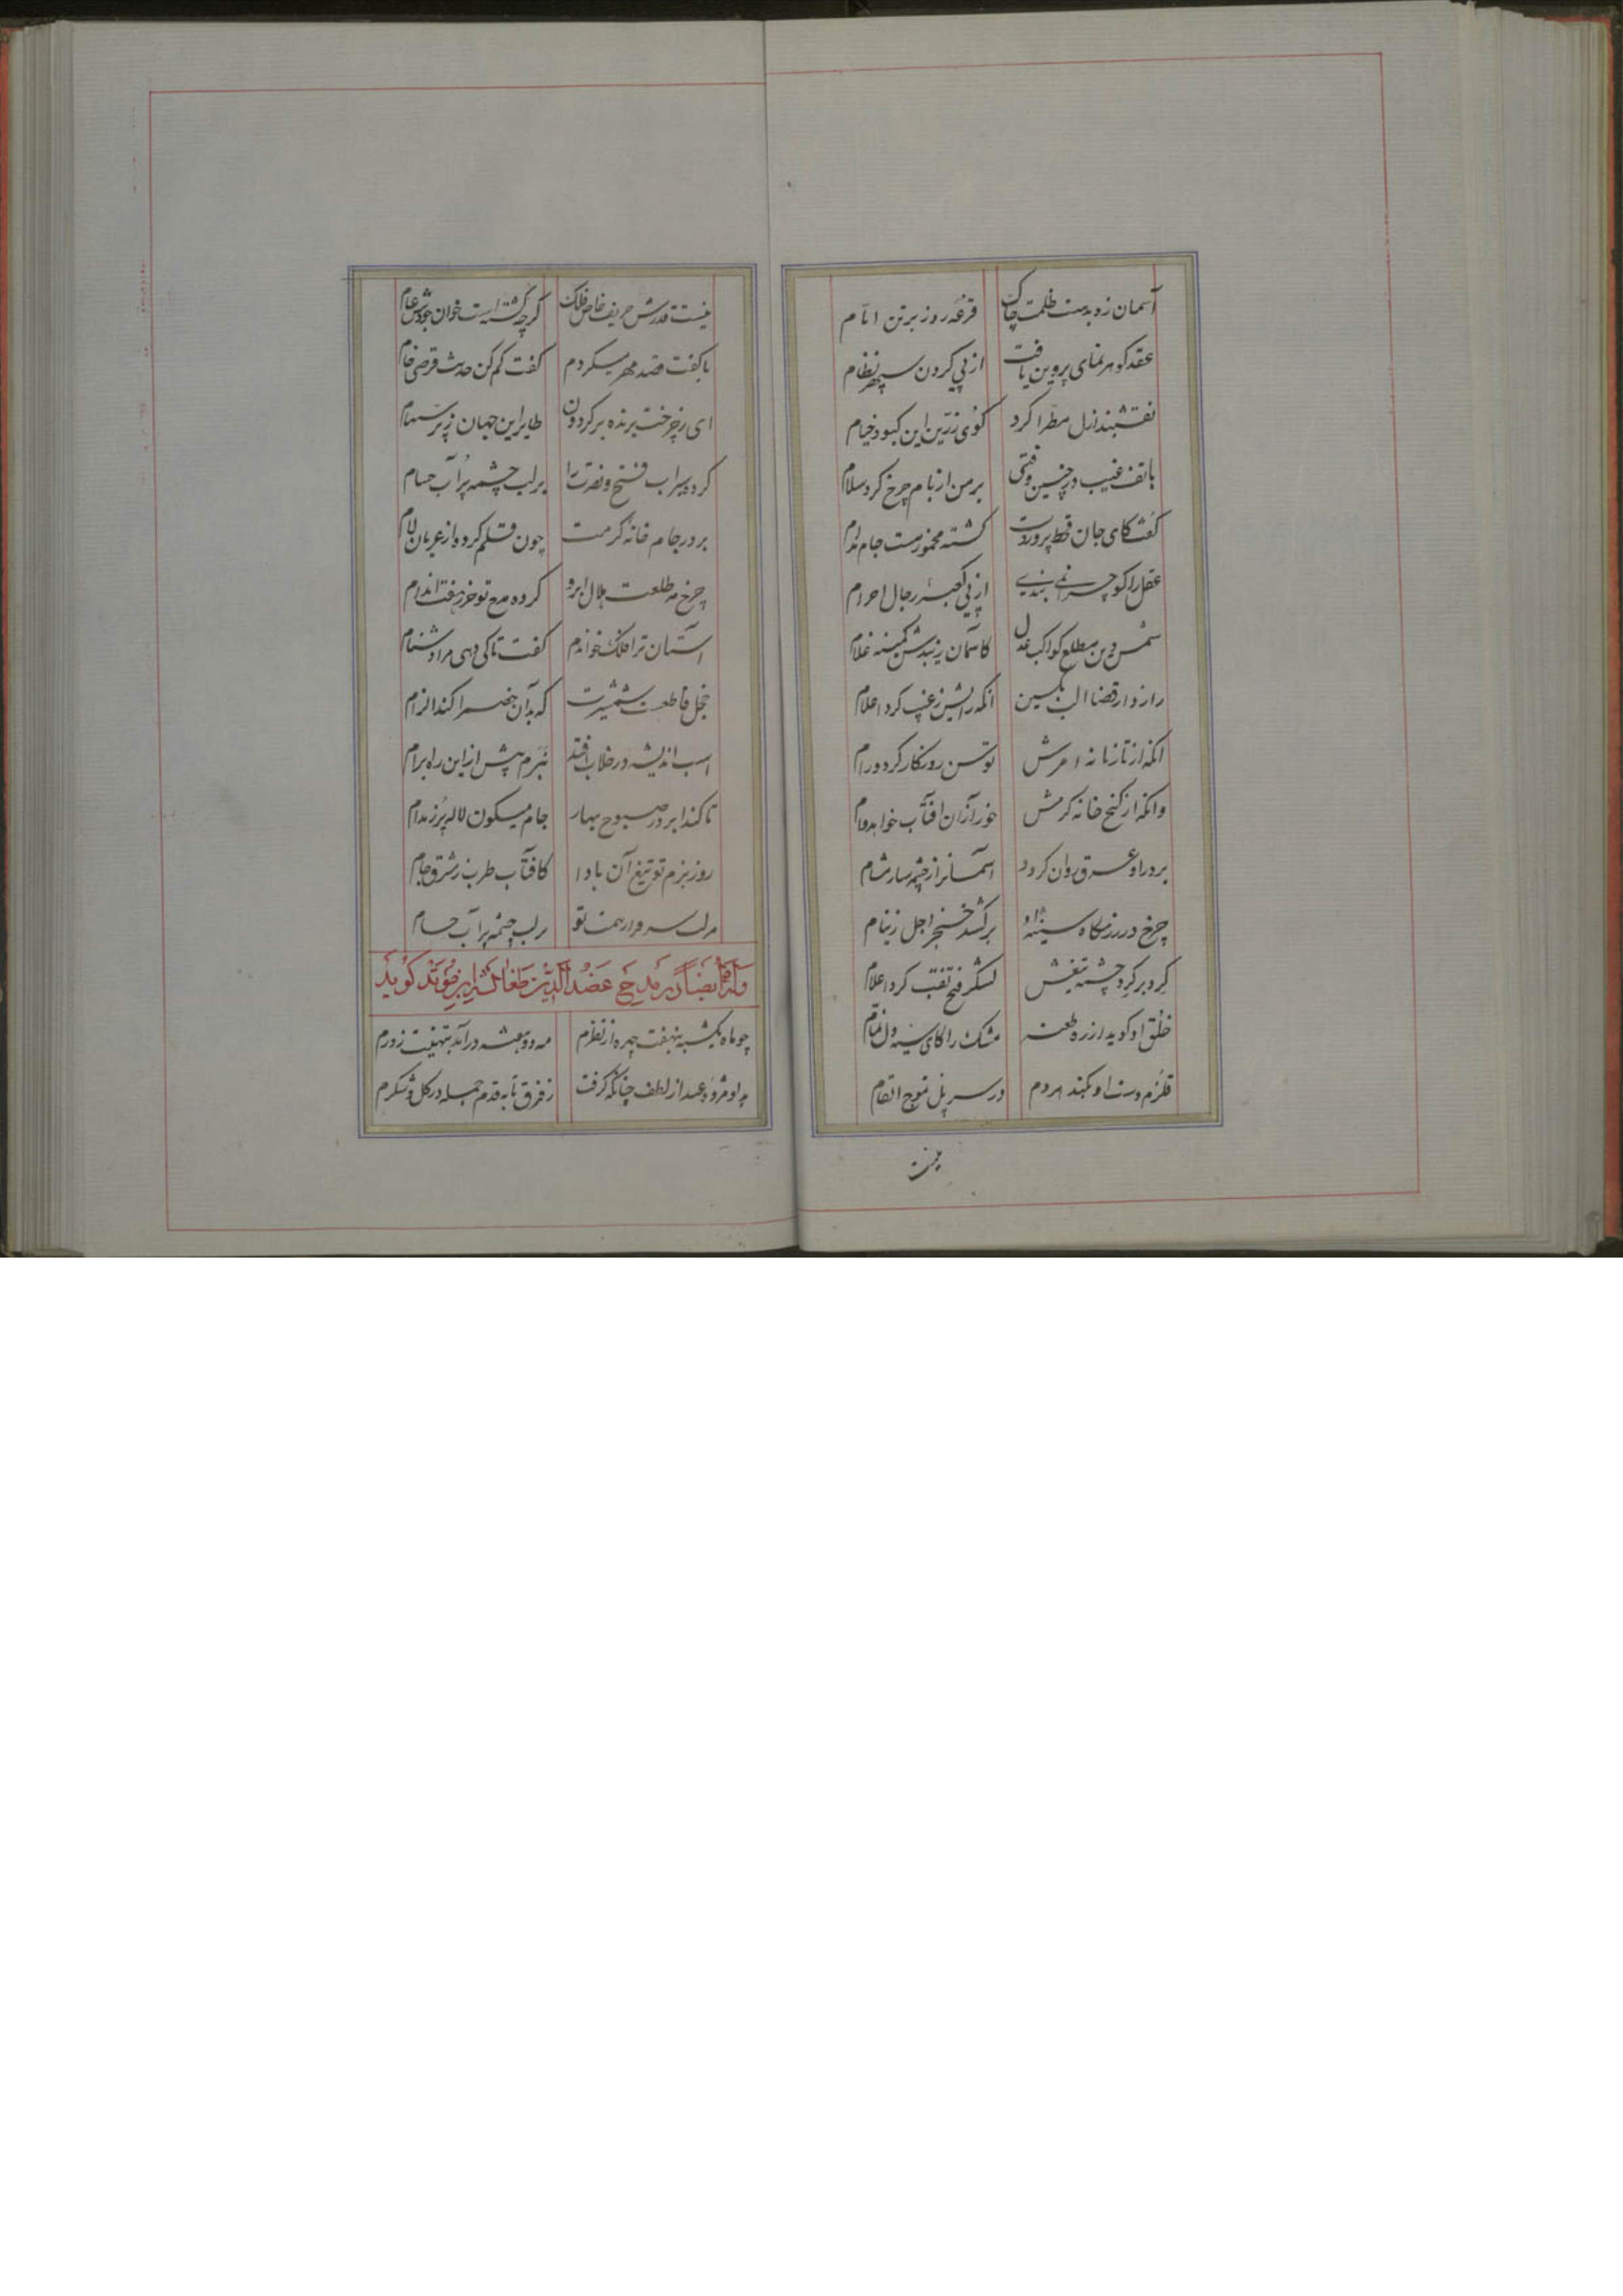 آسمان زد بدست ظلمت چاک قرعه روز برتن ایام
عقد گوهر نمای پروین یافت از پی کردن سپهر نظام
نقشبند ازل مطرا کرد کوی زرین این کبود خیام
هاتف غیب در چنین وقتی بر من از بام چرخ کرد سلام
گفت کای جان قحط پرورت گشته مخمور مست جام مدام
عقل را کو چرا نمی بندی از پی کعبه رجال احرام
شمس دین مطلع کواکب عدل کاسمان زیبدش کمینه غلام
راز دار قضا الب تکین آنکه رایش ز غیب کرد اعلام
آنکه از تازیانه امرش توسن روزگار گردد رام
وانکه از کنج خانه کرمش خور آزان آفتاب خواهد وام
بر در او عرق روان گردد آسمانرا ز چشمه سار مشام
چرخ در رزمگاه سینه او برکشد خنجر اجل ز نیام
گرد بر گرد چشمه تیغش لشکر فتح تفت کرد اعلام
خلق او گوید از ره طعنه مشک را کای سیه دل نمام
قلزم دست او بکند هر دم در سر پل تموج انعام
نیست
نیست قدرش حریف خاص فلک گرچه گشته است خوان جودش عام
با کفت قصه مهر میکردم گفت کم کن حدیث قرضی خام
ای ز چرخت برنده بر گردون طایر این جهان ز پر سهام
کرده سیراب فتح و نصرت را بر لب چشمه پر آب حسام
بر در جام خانه کرمت چون قلم کرده از عریان لام
چرخ مه طلعت هلال ابرو کرده مدح تو حرز هفت اندام
آستان ترا فلک خواندم گفت تا کی دهی مرا دشنام
خجل قاطعست شمشیرت که بدان خصم را کند الزام
اسب اندیشه در خلاب افتد نبرم پیش از این راه برام
تا کند ابر در صبوح بهار جام میگون لاله پر ز مدام
روز بزم تو تیغ آن بادا کافتاب طرب ز شرق جام
بر لب چشمه پر آب حسام
وله ایضا در مدح عضد الدین طغانشاه بن موید گوید
چو ماه یکشبه بنهفت چهره از نظرم مه دو هفته درآمد بتهنیت ز درم
بداو مژده عید از لطف چنانکه گرفت ز فرق تا به قدم جمله در گل و شکرم